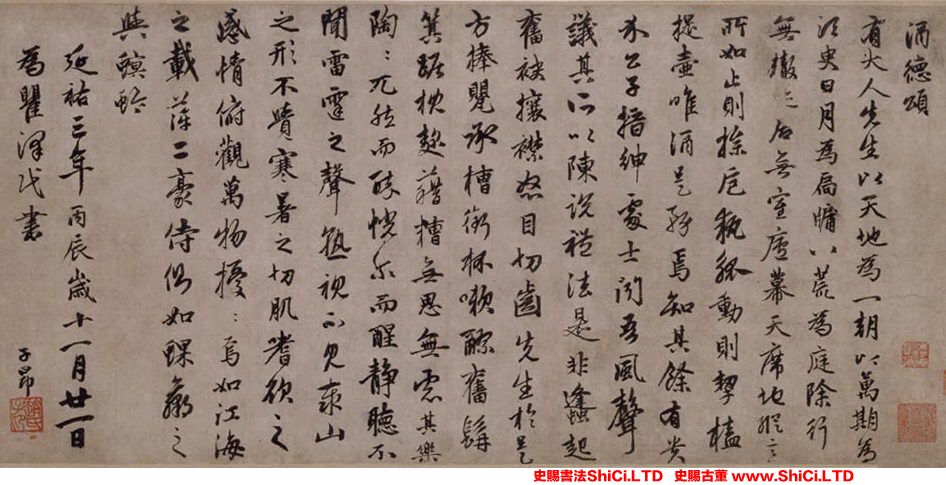 酒德頌
有大人先生以天地為一朝以萬期為
須臾日月為扃牖八荒為庭除行
無轍迹居無室廬幕天席地縱意
所如止則操巵執觚動則挈榼
提壺唯酒是務焉知其餘有貴
介公子搢紳處士聞吾風聲
議其所以陳說禮法是非蜂起
奮袂攘襟怒目切齒先生於是
方捧甖承槽銜杯嗽醪奮髯
箕踞枕麴藉糟無思無慮其樂
陶〻兀然而醉恍尔而醒静聽不
聞雷霆之聲熟視不見泰山
之形不覺寒暑之切肌嗜欲之
感情俯觀萬物擾〻焉如江海
之載萍二豪侍側如蜾蠃之
與螟蛉
延祐三年丙辰歲十一月廿一日
為瞿澤民書
子昂
史賜書法ShiCi.LTD 史賜古董 www.ShiCi.LTD